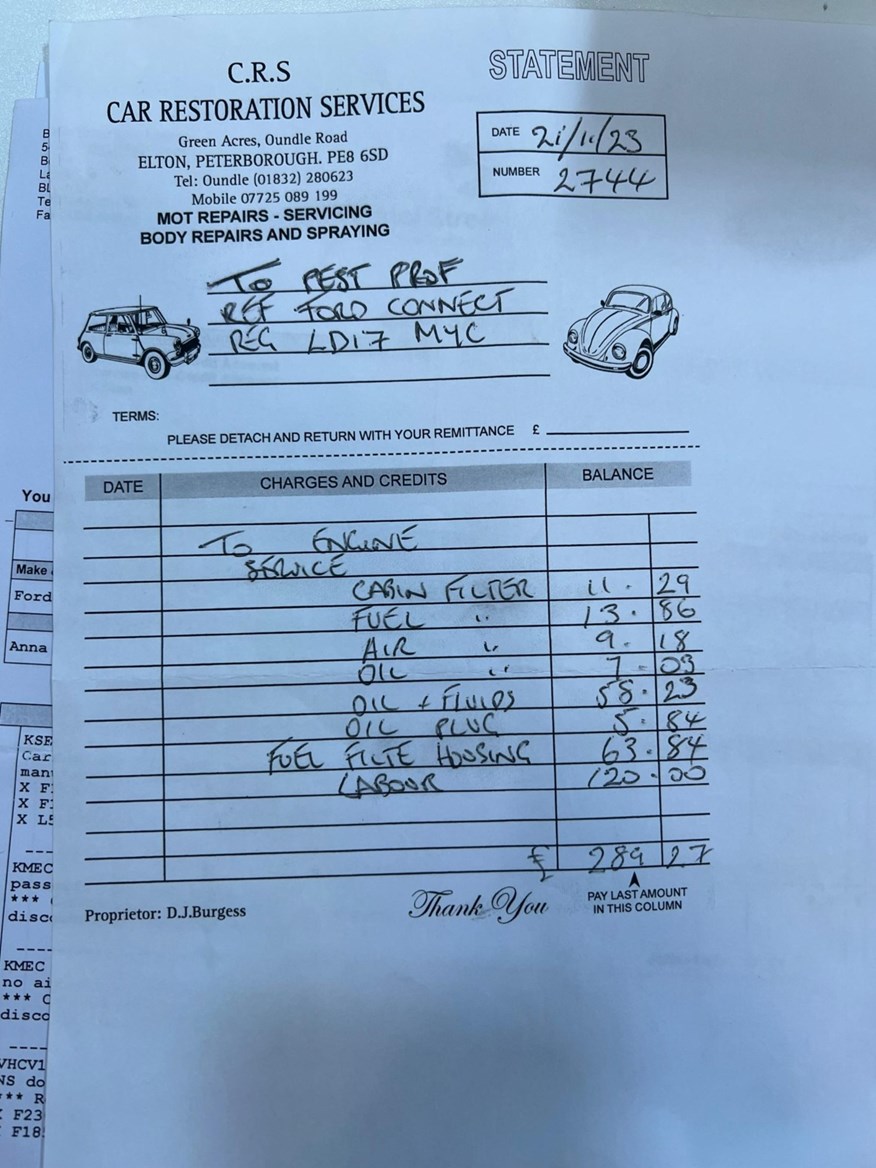 C.R.S
CAR RESTORATION SERVICES
Green Acres, Oundle Road
ELTON, PETERBOROUGH. PE8 6SD
Tel: Oundle (01832) 280623
Mobile 07725 089 199
MOT REPAIRS - SERVICING
BODY REPAIRS AND SPRAYING
STATEMENT
DATE 21/11/23
NUMBER 2744
TO PEST PROF
REF FORD CONNECT
REG LD17 MYC
TERMS:
PLEASE DETACH AND RETURN WITH YOUR REMITTANCE £
DATE CHARGES AND CREDITS BALANCE
TO ENGINE
SERVICE
CABIN FILTER 11.29
FUEL " 13.86
AIR " 9.18
OIL " 7.03
OIL + FLUIDS 58.23
OIL PLUG 5.84
FUEL FILTE HOUSING 63.84
LABOUR 120.00
£ 289 27
Proprietor: D.J.Burgess
Thank You
PAY LAST AMOUNT
IN THIS COLUMN
You
Make
Ford
Anna
KSE
Car
man
X F
X F
X L5
KMEC
pass
***
disco
KMEC
no ai
*** C
disco
VHCV1
NS do
*** R
F23
F18